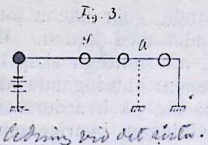 Fig. 3.
g a
ledning vid det sista.